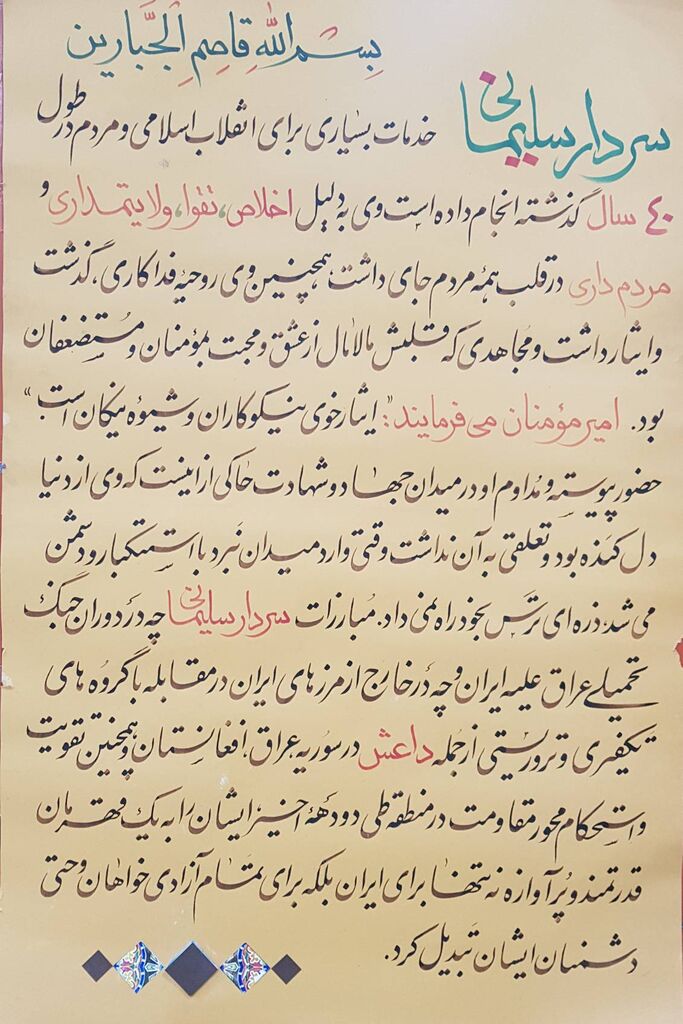 بسم الله قاصم الجبارین
سردار سلیمانی خدمات بسیاری برای انقلاب اسلامی و مردم در طول
٤٠ سال گذشته انجام داده است وی به دلیل اخلاص، تقوا، ولایتمداری و
مردم داری در قلب همه مردم جای داشت، همچنین وی روحیه فداکاری، گذشت
و ایثار داشت و مجاهدی که قلبش مالامال از عشق و محبت بمؤمنان و مستضعفان
بود. امیر مؤمنان می فرمایند: "ایثار خوی نیکوکاران و شیوه نیکان است"
حضور پیوسته و مداوم او در میدان جهاد و شهادت حاکی از اینست که وی از دنیا
دل کنده بود و تعلقی به آن نداشت وقتی وارد میدان نبرد با استکبار و دشمن
می شد، ذره ای ترس بخود راه نمی داد. مبارزات سردار سلیمانی چه در دوران جنگ
تحمیلی عراق علیه ایران و چه در خارج از مرزهای ایران در مقابله با گروه های
تکفیری و تروریستی از جمله داعش در سوریه، عراق، افغانستان و همچنین تقویت
و استحکام محور مقاومت در منطقه طی دو دههٔ اخیر ایشان را به یک قهرمان
قدرتمند و پرآوازه نه تنها برای ایران بلکه برای تمام آزادی خواهان و حتی
دشمنان ایشان تبدیل کرد.